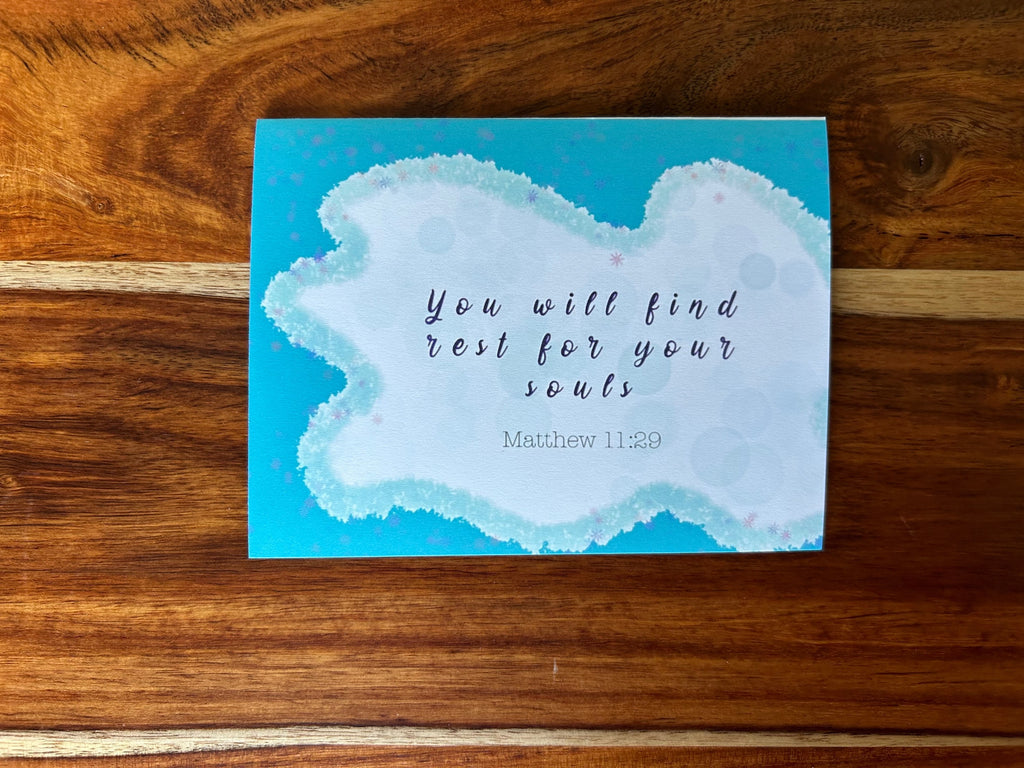 You will find
rest for your
souls
Matthew 11:29